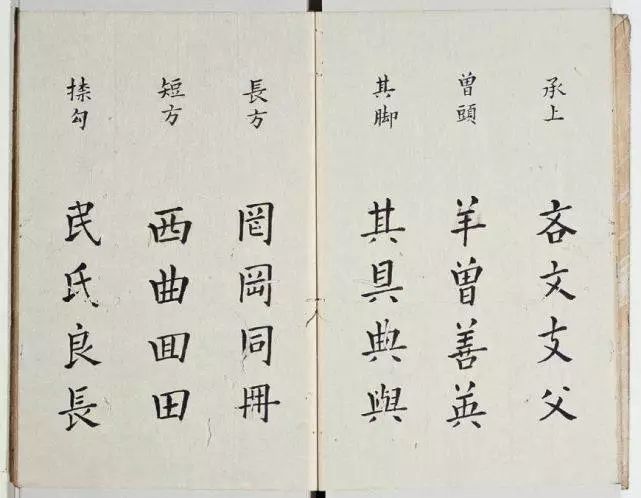 承上
吝文支父
曾頭
羊曾善英
其脚
其具典與
長方
罔岡同冊
短方
西曲囬田
㨷勾
民氏良長